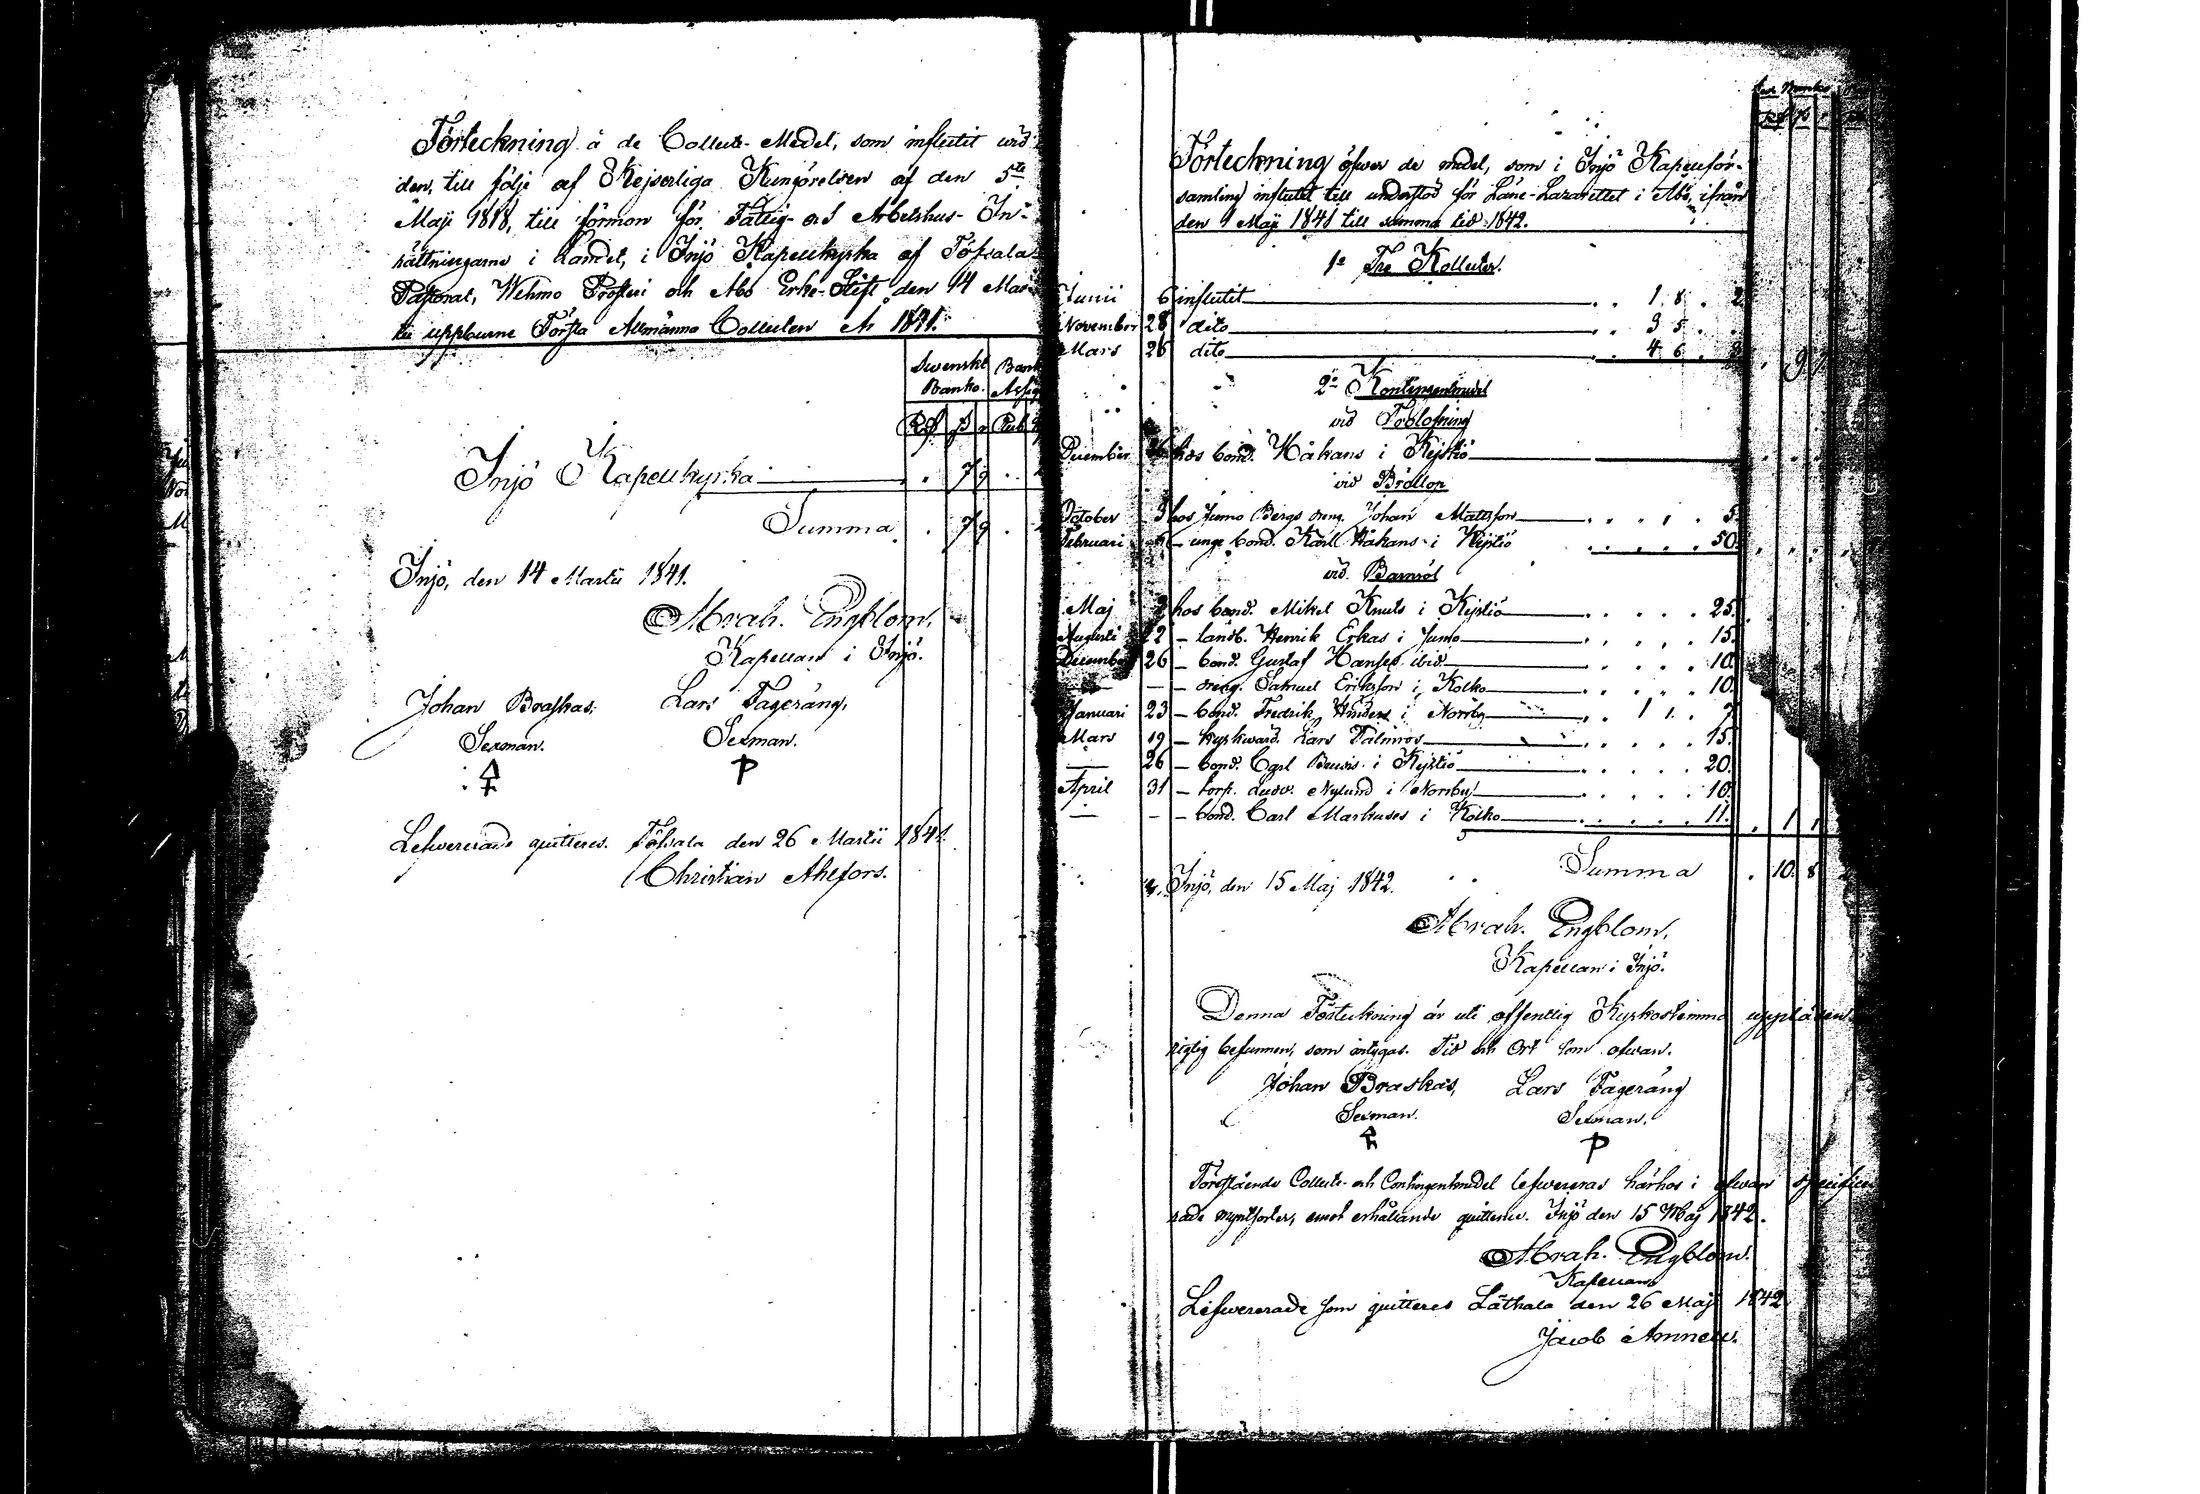 Förteckning å de Collect-Medel, som influtit wid
den, till följe af Kejserliga Kungörelsen af den 5te
Maji 1818, till förmon för Fattig- och Arbetshus-In-
rättningarne i Landet, i Injö Kapellkyrka af Töfsala
Pastorat, Wehmo Prosteri och Åbo Erke-Stift den 14 Mar-
tii uppburne Första Allmänna Collecten År 1841.
Swenskt Bank
Banko. Assig
Rdr ß r Rub
Injö Kapellkyrka . 79 .
Summa . 79 .
Injö, den 14 Martii 1841.
Abrah. Engblom,
Kapellan i Injö.
Johan Braskas, Lars Fageräng,
Sexman. Sexman.
P
Lefwererade quitteres. Töfsala den 26 Martii 1841.
Christian Ahlfors.
Förteckning öfwer de medel, som i Injö Kapellför-
samling influtit till understöd för Läne-Lazarettet i Åbo, ifrån
den 1 Maji 1841 till samma tid 1842.
1o Tre Kollecter.
Junii 6 influtit . . 1 8 . 2
November 28 dito . . 3 5 . .
Mars 26 dito . . 4 6 .
2o Kontingentmedel
vid Trolofning
December hos bond. Håkans i Kejstiö
vid Bröllop
October 3 hos Jumo Bergs dreng. Johan Mattsson . . . 5.
Februari – unge bond. Karl Håkans i Kejstiö . . . . . 50.
vid Barnsöl
Maj hos bond. Mikel Knuts i Kejstiö . . . . . 25.
Augusti 22 – landb. Henrik Erkas i Jumo . . . . . 15.
December 26 – bond. Gustaf Hanses ibid. . . . . . 10.
— — – dreng. Samuel Eriksson i Kolko . . . . . 10.
Januari 23 – bond. Fredrik Hinders i Norrby . . 1 1 . 7
Mars 19 – kyrkward. Lars Palmros . . . . . 15.
— 26 – bond. Carl Bewis i Kejstiö . . . . . 20.
April 31 – torp. Ludv. Nylund i Norrby . . . . . 10.
— — – bond. Carl Markuses i Kolko . . . . . 11. . 1 1
Summa . 10. 8
Injö, den 15 Maj 1842.
Abrah. Engblom,
Kapellan i Injö.
Denna Förteckning är uti offentlig Kyrkostämma uppläsen
rigtig befunnen, som intygas. Tid och Ort som ofwan.
Johan Braskas, Lars Fageräng
Sexman. Sexman.
P
Förestående Collect- och Contingentmedel lefwereras härhos i ofwan specifice-
rade myntsorter, emot erhållande quittence. Injö den 15 Maj 1842.
Abrah. Engblom.
Kapellan
Lefwererade som quitteres Låthala den 26 Maji 1842
Jacob